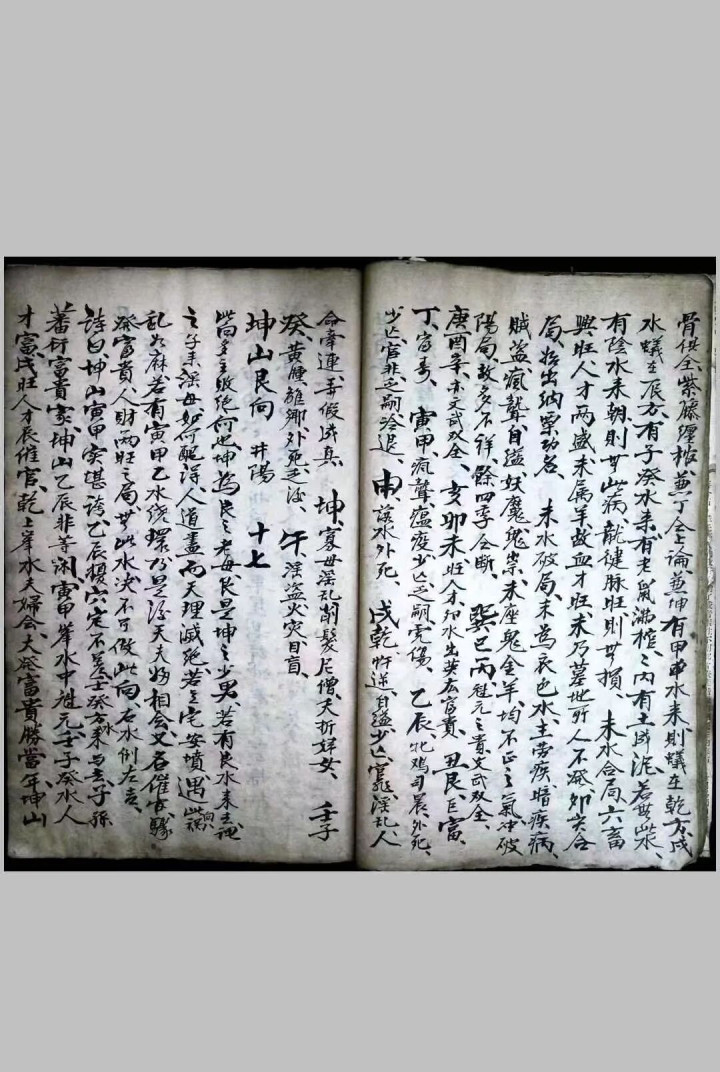 骨俱全、紫藤纏棺、兼丁仝上論、兼坤有甲申水来、則蟻在乾方、戌
水蟻在辰方、有子癸水来、有老鼠滿棺之内有土成泥、若無此水、
有陰水来朝、則無此病、龍健脉旺、則無損、未水合局、六畜
興旺、人才兩盛、未属羊、故血才旺、未乃墓地、所人不發、卯亥合
局、於出納粟功名、未水破局、未為衣色水、主劳疾、暗疾病、
賊盗瘋聾、自縊妖魔鬼祟、未座鬼金羊、均不正之氣、冲破
陽局、故多不祥、餘四季仝断、巽巳丙、魁元之貴、文武双全、
庚酉辛、亦文武双全、亥卯未旺人才、卯水出英, 広富貴、丑艮巨富、
丁、富寿、寅甲瘋聾瘟疫、少亡乏嗣、虎傷、乙辰、牝鸡司晨、外死、
少亡、官非、乏嗣、冷退、申、該水外死、戌乾、忤逆、自縊、少亡、寡、淫乱、人
命牵連、弄假成真、坤、寡母淫乱、削髮尼僧、夭折婦女、壬子
癸、黄腫、離鄉外死、乏嗣、午、淫盗火灾目盲、
坤山艮向 井陽 十七
此向多主敗絕、何也、坤為艮之老母、艮是坤之少男、若有艮水来去、魂
之子来淫母、如何配得、人道盡而天理滅絕、若立宅安墳、遇此向
乱如麻、若有寅甲乙水繞環、乃是淫天夫婦相会、又名催官縣
發富貴、人財兩旺之局、無此水、决不可做此向、右水倒左吉、
詩曰、坤山寅甲实堪誇、乙辰擾穴定不差、壬癸方来与去、子孫
蕃衍富貴家、坤山乙辰非等闲、寅甲峯水中魁元、壬子癸水人
才富、戌旺人才辰催官、乾上峯水夫婦会、大發富貴勝當年、坤山